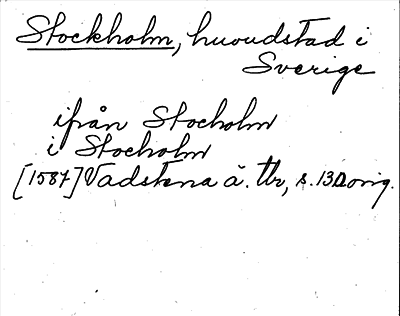 Stockholm, huvudstad i
Sverige
ifrån Stocholm
i Stocholm
[1587] Vadstena ä. tb, s. 13 orig.